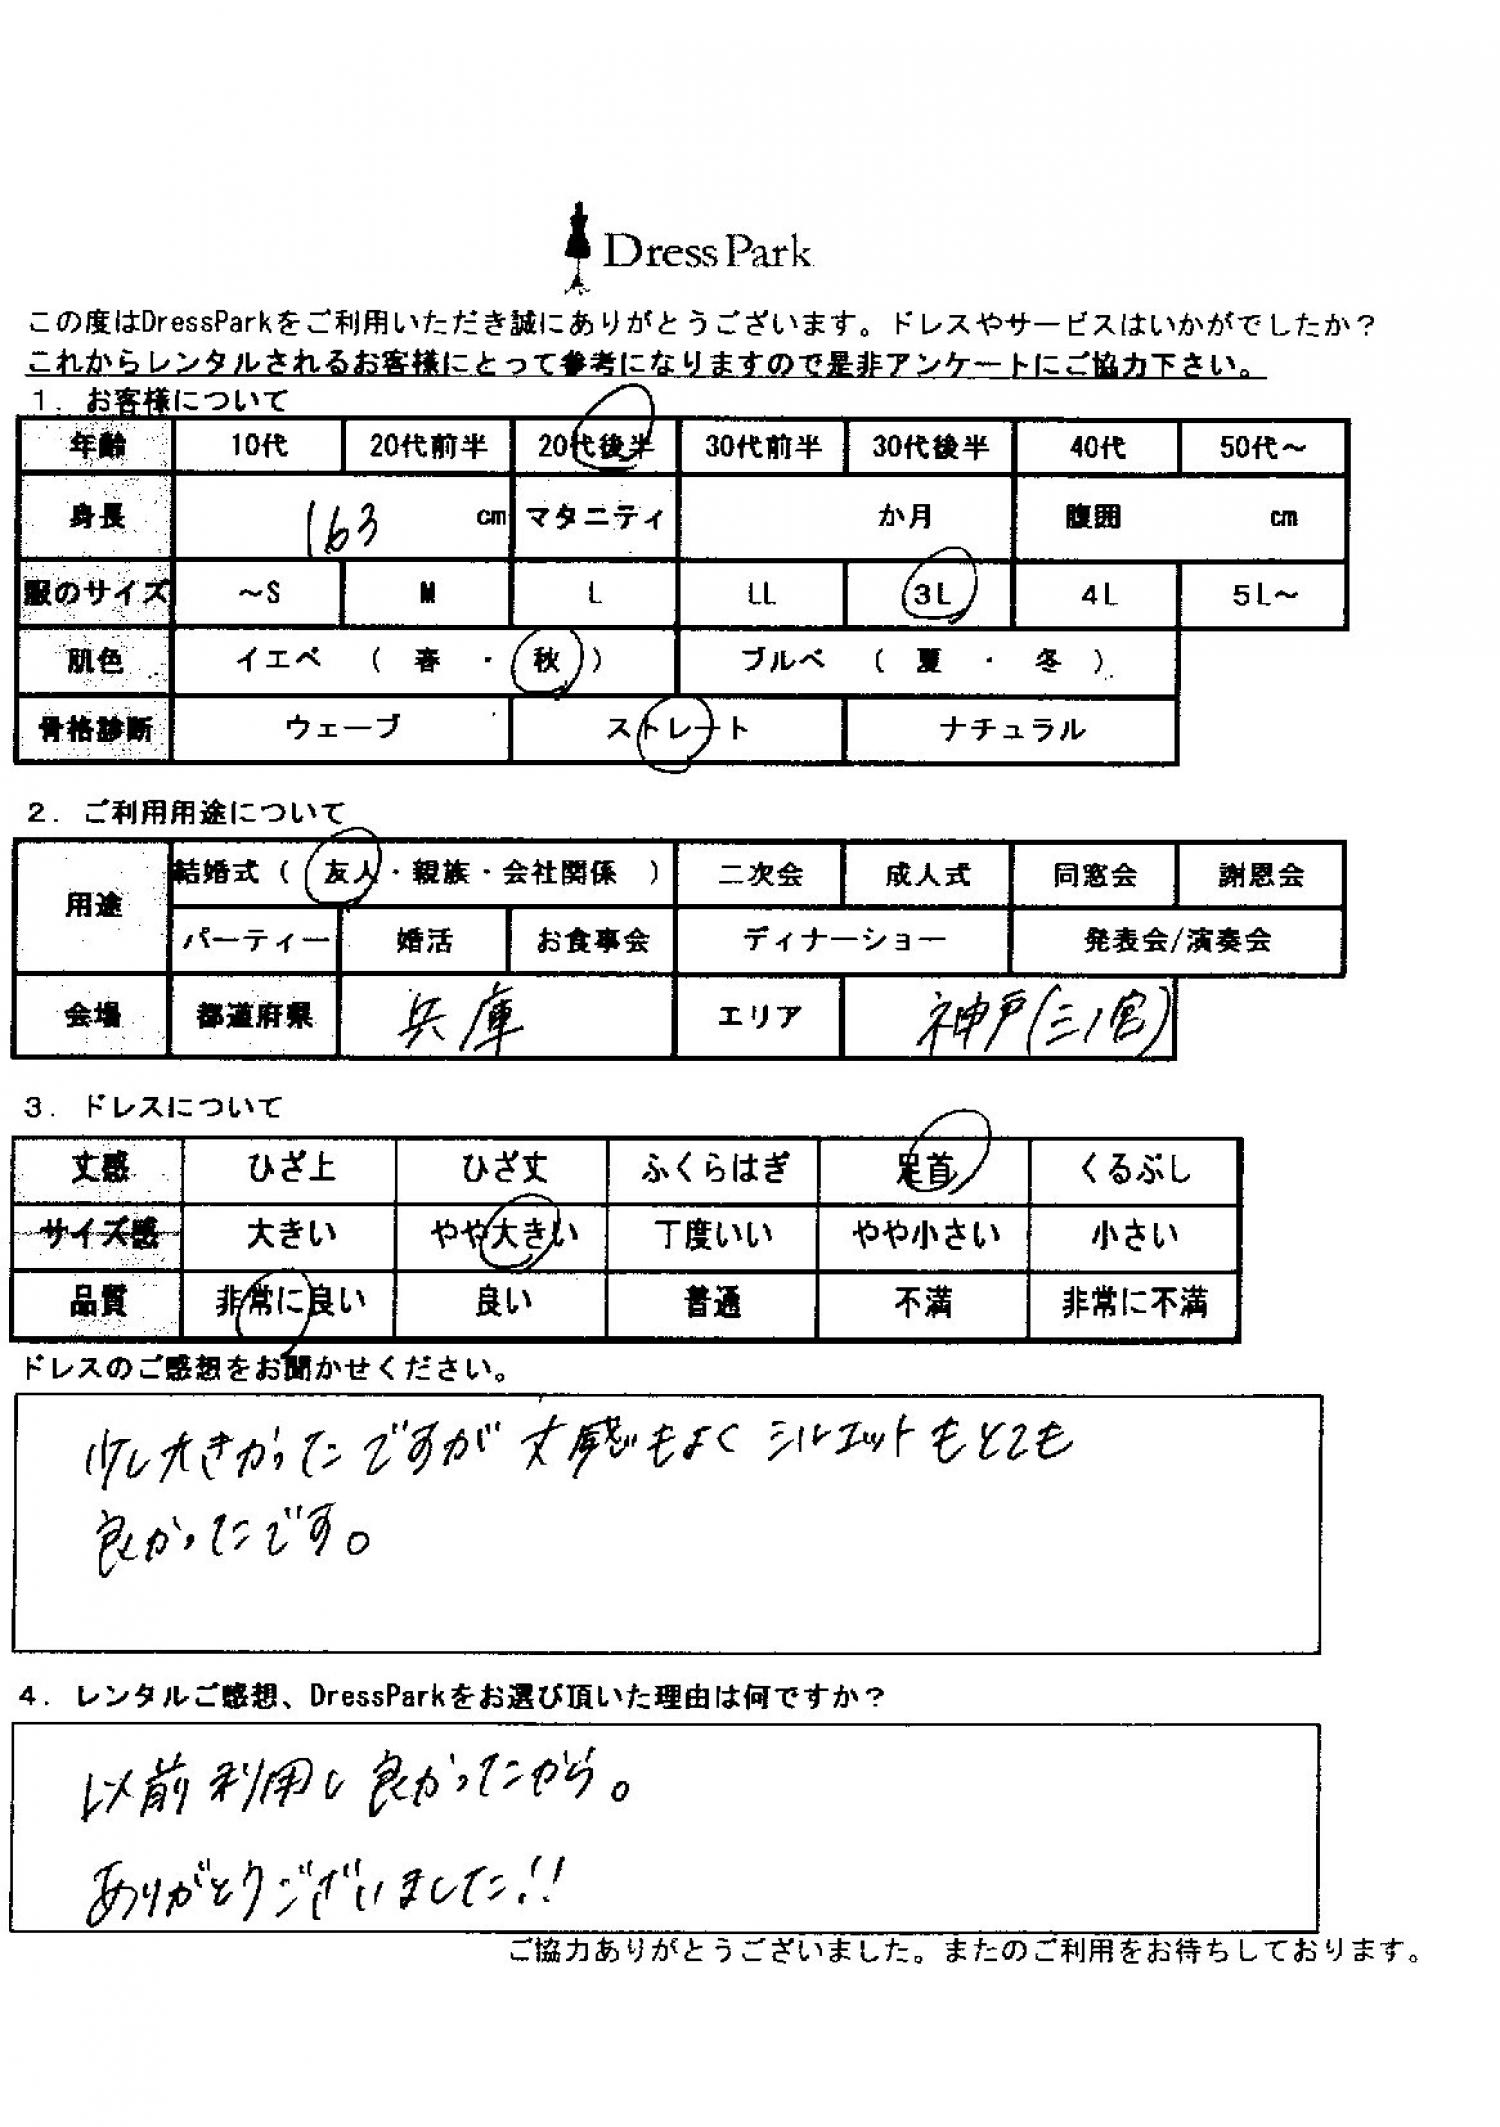 DressPark
この度はDressParkをご利用いただき誠にありがとうございます。ドレスやサービスはいかがでしたか？
これからレンタルされるお客様にとって参考になりますので是非アンケートにご協力下さい。
１．お客様について
年齢 10代 20代前半 20代後半 30代前半 30代後半 40代 50代～
身長 163 cm マタニティ か月 腹囲 cm
服のサイズ ～S M L LL 3L 4L 5L～
肌色 イエベ （ 春 ・ 秋 ） ブルベ （ 夏 ・ 冬 ）
骨格診断 ウェーブ ストレート ナチュラル
２．ご利用用途について
用途 結婚式（ 友人・親族・会社関係 ） 二次会 成人式 同窓会 謝恩会
パーティー 婚活 お食事会 ディナーショー 発表会/演奏会
会場 都道府県 兵庫 エリア 神戸(三ノ宮)
３．ドレスについて
丈感 ひざ上 ひざ丈 ふくらはぎ 足首 くるぶし
サイズ感 大きい やや大きい 丁度いい やや小さい 小さい
品質 非常に良い 良い 普通 不満 非常に不満
ドレスのご感想をお聞かせください。
少し大きかったですが丈感もよくシルエットもとても
良かったです。
４．レンタルご感想、DressParkをお選び頂いた理由は何ですか？
以前利用し良かったから。
ありがとうございました!!
ご協力ありがとうございました。またのご利用をお待ちしております。